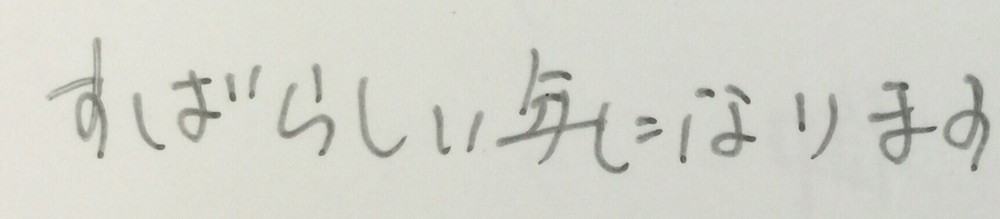 すばらしい年になります